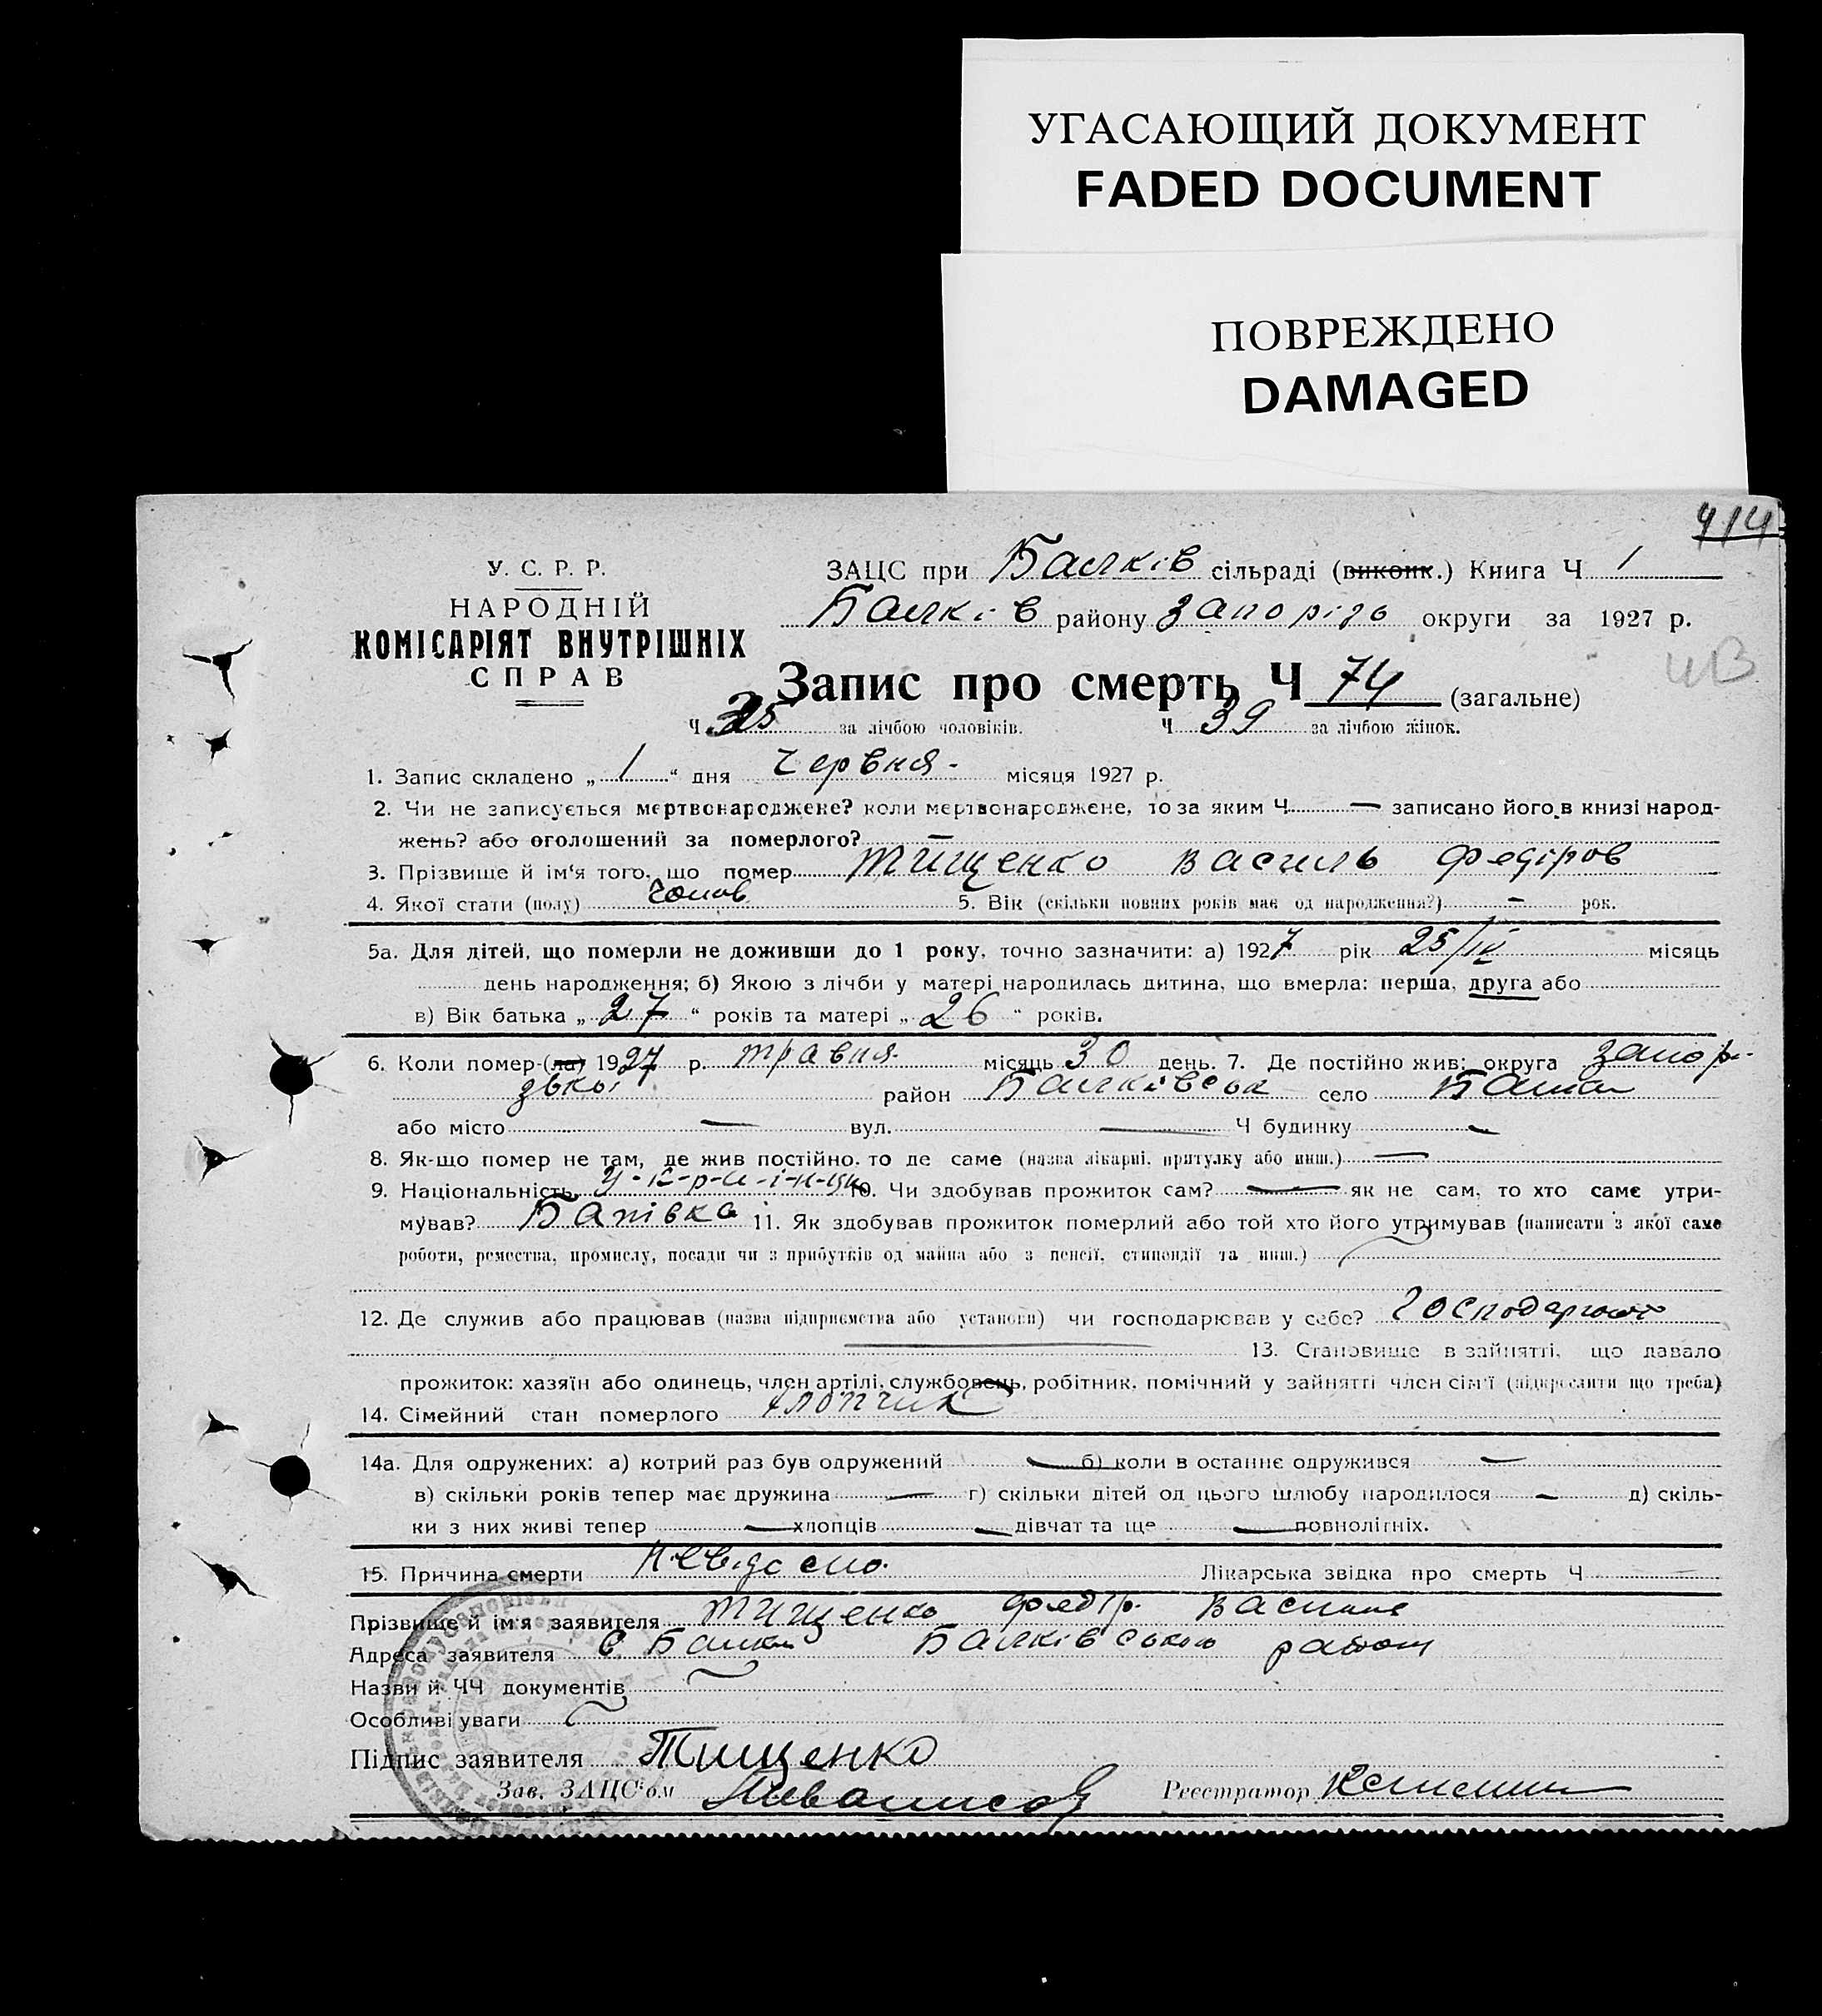 УГАСАЮЩИЙ ДОКУМЕНТ
FADED DOCUMENT
ПОВРЕЖДЕНО
DAMAGED
414
У. С. Р. Р.
НАРОДНІЙ
КОМІСАРІЯТ ВНУТРІШНІХ
СПРАВ
ЗАЦС при Балків сільраді (виконк.) Книга Ч 1
Балків району Запорізь округи за 1927 р.
Запис про смерть Ч 74 (загальне)
Ч 35 за лічбою чоловіків. Ч 39 за лічбою жінок.
1. Запис складено „ 1 “ дня Червня місяця 1927 р.
2. Чи не записується мертвонароджене? коли мертвонароджене, то за яким Ч — записано його в книзі народ-
жень? або оголошений за померлого? —
3. Прізвище й ім'я того, що помер Тищенко Василь Федіров
4. Якої стати (полу) Чолов 5. Вік (скільки повних років має од народження?) - рок.
5а. Для дітей, що померли не доживши до 1 року, точно зазначити: а) 1927 рік 25/IV місяць
день народження; б) Якою з лічби у матері народилась дитина, що вмерла: перша, друга або
в) Вік батька „ 27 “ років та матері „ 26 “ років.
6. Коли помер-(ла) 1927 р. травня місяць 30 день. 7. Де постійно жив: округа Запорі-
зької район Балківськ село Балки
або місто — вул. — Ч будинку —
8. Як-що помер не там, де жив постійно, то де саме (назва лікарні, притулку або инш.) —
9. Національність 10. Чи здобував прожиток сам? — як не сам, то хто саме утри-
мував? Батівка 11. Як здобував прожиток померлий або той хто його утримував (написати з якої саме
роботи, ремества, промислу, посади чи з прибутків од майна або з пенсії, стипендії та инш.)
12. Де служив або працював (назва підприємства або установи) чи господарював у себе?
13. Становище в зайнятті, що давало
прожиток: хазяїн або одинець, член артілі, службовець, робітник, помічний у зайнятті член сім'ї (підкреслити що треба)
14. Сімейний стан померлого хлопчик
14а. Для одружених: а) котрий раз був одружений — б) коли в останнє одружився —
в) скільки років тепер має дружина — г) скільки дітей од цього шлюбу народилося — д) скіль-
ки з них живі тепер — хлопців — дівчат та ще — повнолітніх.
15. Причина смерти Невідомо Лікарська звідка про смерть Ч
Прізвище й ім'я заявителя Тищенко Федір
Адреса заявителя с. Балки Балківського району
Назви й ЧЧ документів
Особливі уваги
Підпис заявителя Тищенко
Зав. ЗАЦС'ом Реєстратор